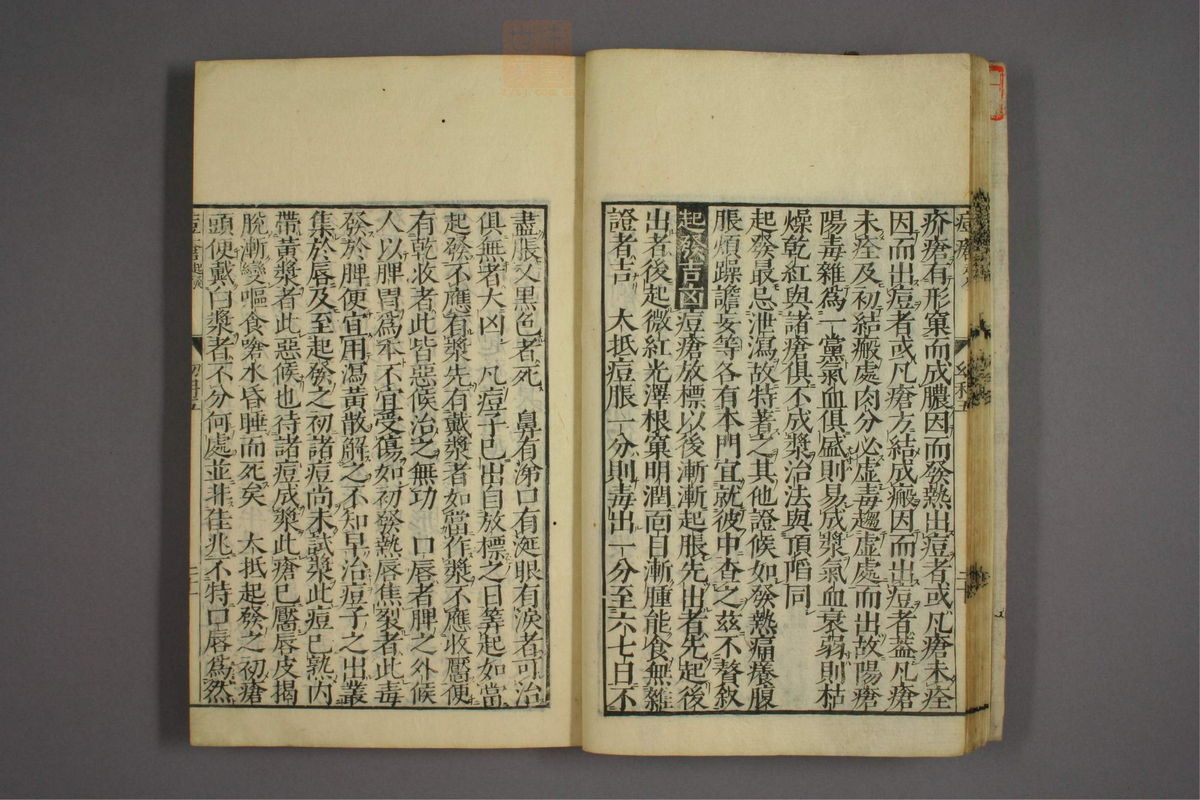 疥瘡有形窠而成膿因而發熱出痘者或凡瘡未痊
因而出痘者或凡瘡方結成瘢因而出痘者蓋凡瘡
未痊及初結瘢處肉分必虛毒趨虛處而出故陽瘡
陽毒雜爲一黨氣血俱盛則易成漿氣血衰弱則枯
燥乾紅與諸瘡俱不成漿治法與頂陷同
起發最忌泄瀉故特著之其他證候如發熱痛癢腹
脹煩躁譫妄等各有本門宜就彼中查之茲不贅敘
起發吉凶痘瘡放標以後漸漸起脹先出者先起後
出者後起微紅光澤根窠明潤面目漸腫能食無雜
證者吉 大抵痘脹一分則毒出一分至六七日不
盡脹又黑色者死 鼻有涕口有涎眼有淚者可治
俱無者大凶 凡痘子已出自放標之日等起如當
起發不應有漿先有戴漿者如當作漿不應收靨便
有乾收者此皆惡候治之無功 口唇者脾之外候
人以脾胃爲本不宜受傷如初發熱唇焦裂者此毒
發於脾便宜用瀉黃散解之不知早治痘子之出叢
集於唇及至起發之初諸痘尚未試漿此痘已熟內
帶黃漿者此惡候也待諸痘成漿此瘡已靨唇皮揭
脫漸變嘔食嗆水昏睡而死矣 大抵起發之初瘡
頭便戴白漿者不分何處並非佳兆不特口唇爲然